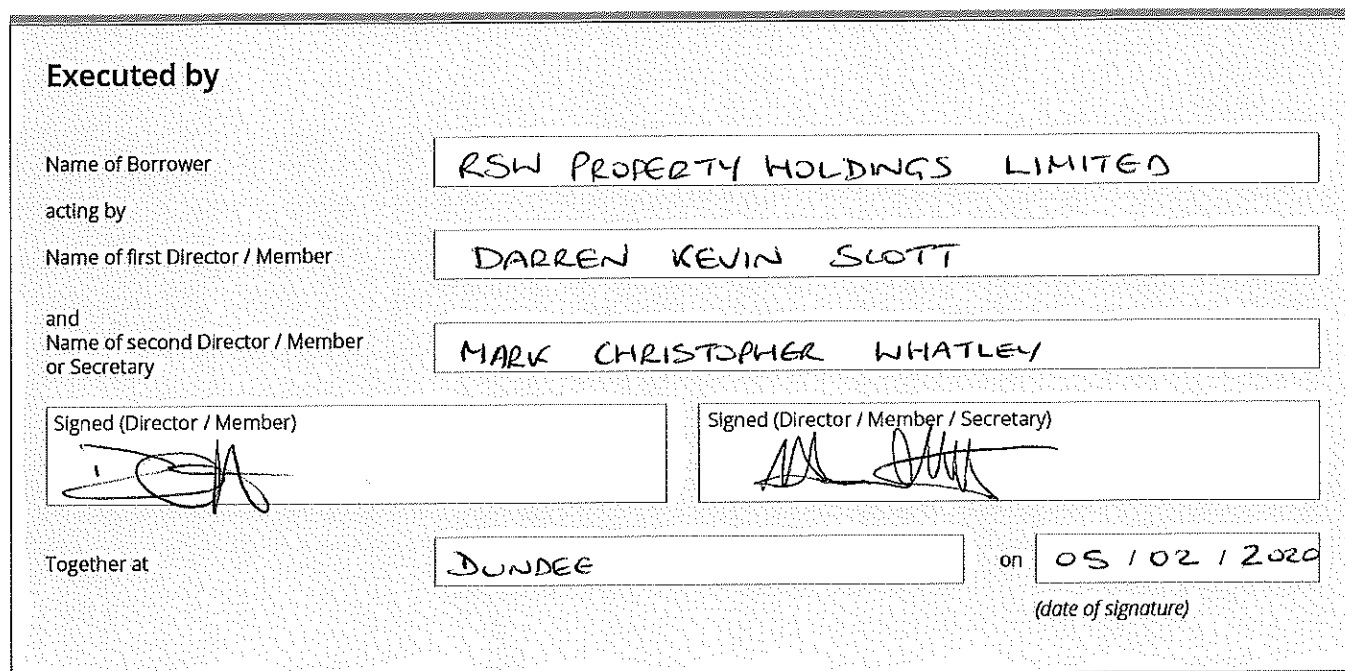 Executed by
Name of Borrower RSW PROPERTY HOLDINGS LIMITED
acting by
Name of first Director / Member DARREN KEVIN SCOTT
and
Name of second Director / Member
or Secretary MARK CHRISTOPHER WHATLEY
Signed (Director / Member) Signed (Director / Member / Secretary)
Together at DUNDEE on 05 / 02 / 2020
(date of signature)